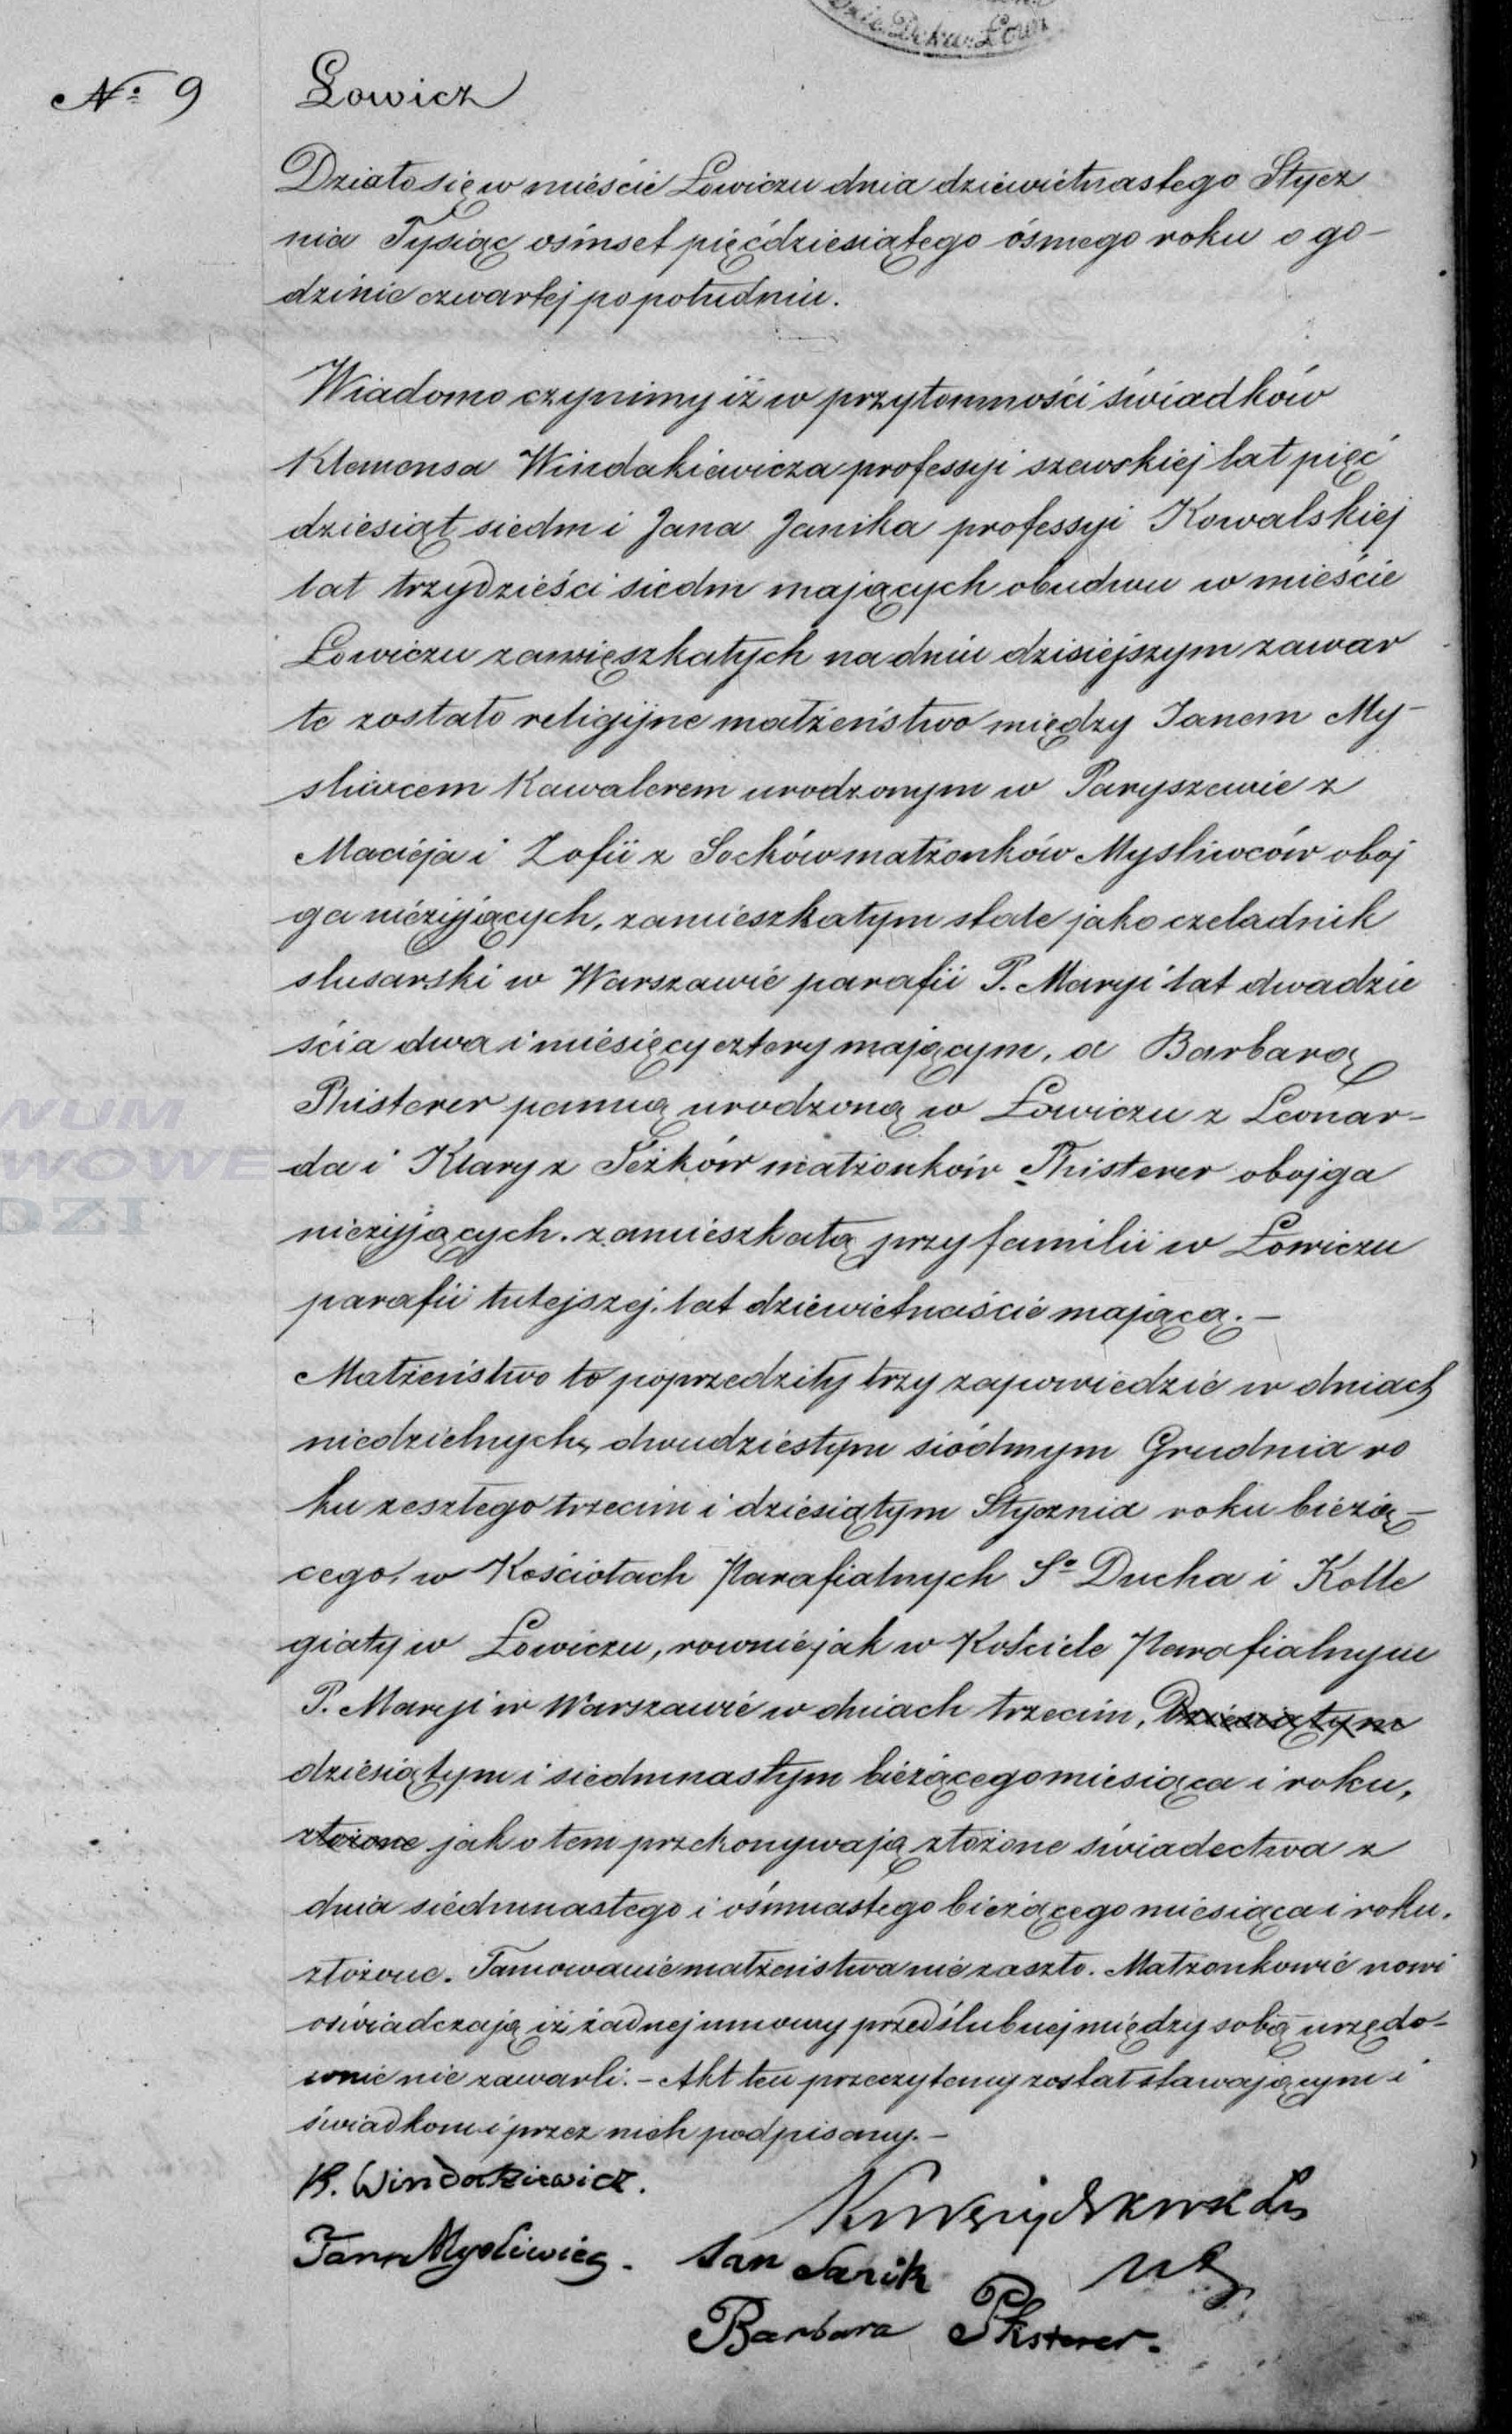 Dzie. Dekan. Łowi
№ 9
Łowicz
Działo się w mieście Łowiczu dnia dziewiętnastego Stycz
nia Tysiąc ośmset pięćdziesiątego ósmego roku o go-
dzinie czwartej popołudniu.
Wiadomo czynimy iż w przytomności świadków
Klemensa Windakiewicza professyi szewskiej lat pięć
dziesiąt siedm i Jana Janika professyi Kowalskiej
lat trzydzieści siedm mających obudwu w mieście
Łowiczu zamięszkałych na dniu dzisiejszym zawar
te zostało religijne małżeństwo między Janem My-
sliwcem Kawalerem urodzonym w Paryszewie z
Macieja i Zofii z Soćków małżonków Mysliwców oboj
ga nieżyjących, zamieszkałym stale jako czeladnik
slusarski w Warszawie parafii P. Maryi lat dwadzie
ścia dwa i miesięcy cztery mającym, a Barbarą
Phisterer panną urodzoną w Łowiczu z Leonar-
da i Klary z Teżków małżonków Phisterer obojga
nieżyjących. zamieszkałą przy familii w Łowiczu
parafii tutejszej. lat dziewietnaście mającą. —
Małżeństwo to poprzedziły trzy zapowiedzie w dniach
niedzielnych, dwudziestym siódmym Grudnia ro
ku zeszłego trzecim i dziesiątym Stycznia roku bieżą-
cego, w Kościołach Parafialnych Sº Ducha i Kolle
giaty w Łowiczu, rownie jak w Kościele Parafialnym
P. Maryi w Warszawie w dniach trzecim, Dziesiątym
dziesiątym i siedmnastym bieżącego miesiąca i roku,
złożone jak o tem przekonywają złożone świadectwa z
dnia siedmnastego i ośmnastego bieżącego miesiąca i roku.
złożone. Tamowanie małżeństwa nie zaszło. Małżonkowie nowi
oświadczają iż żadnej umowy przedślubnej między sobą urzędo-
wnie nie zawarli. – Akt ten przeczytany został stawającym i
świadkom i przez nich podpisany. –
K. Windakiewicz.
Jan Mysliwiec.
Jan Janik
Barbara Phisterer.
NUM
WOWE
DZI